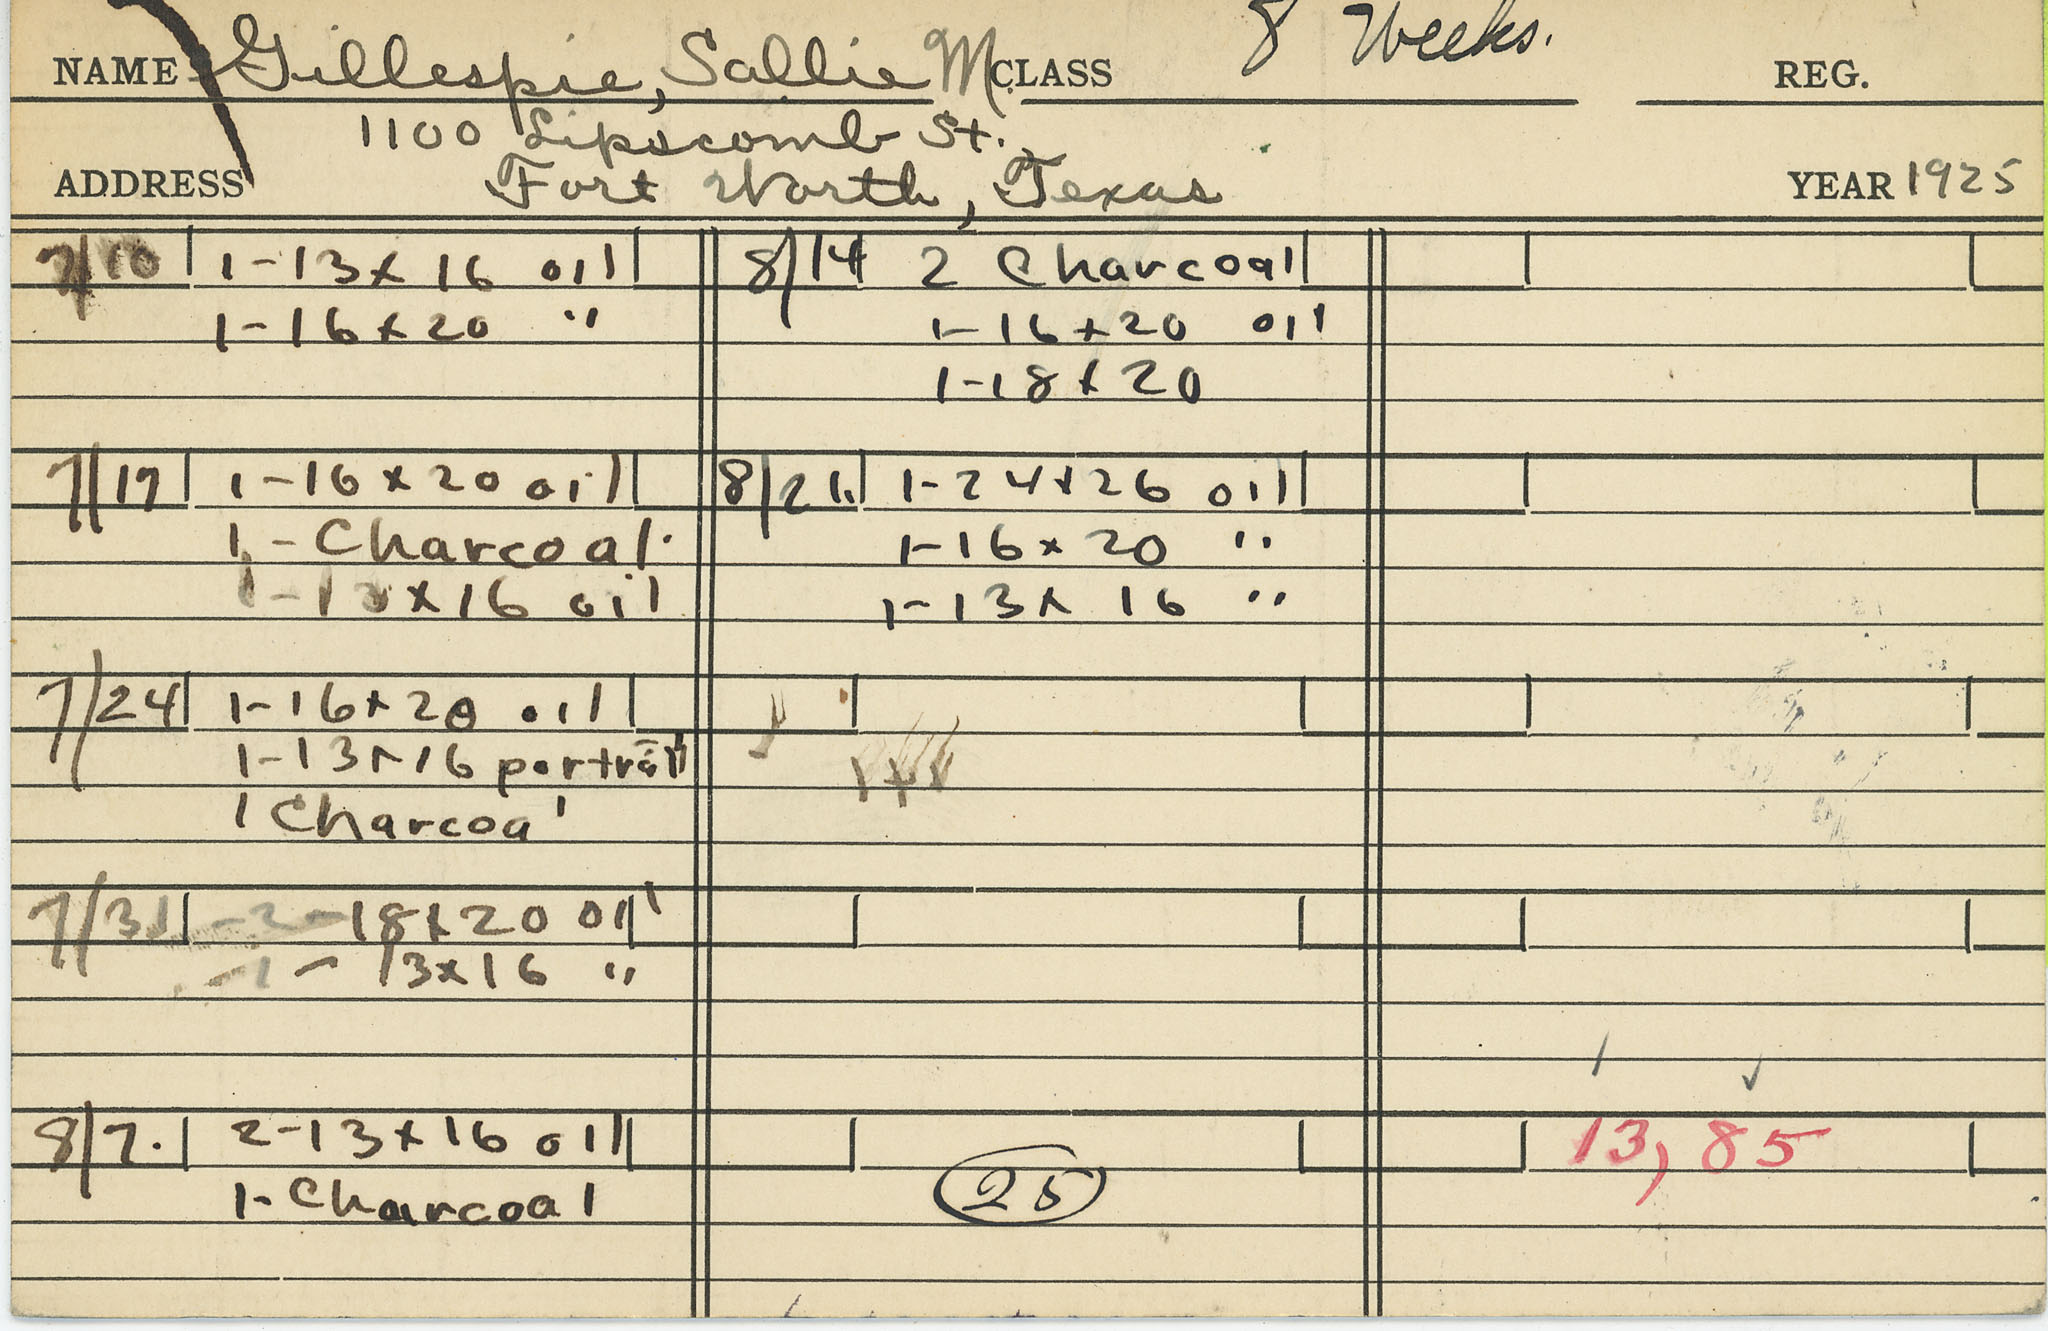 NAME Gillespie, Sallie M. CLASS 8 Weeks. REG.
1100 Lipscomb St.
ADDRESS Fort Worth, Texas YEAR 1925
7/10 1-13x16 oil
1-16x20 "
7/17 1-16x20 oil
1-Charcoal.
1-13x16 oil
7/24 1-16x20 oil
1-13x16 portrait
1 Charcoal
7/31 -2-18x20 oil
-1-13x16 "
8/7. 2-13x16 oil
1-Charcoal
8/14 2 Charcoal
1-16x20 oil
1-18x20
8/21. 1-24x26 oil
1-16x20 "
1-13x16 "
25
13, 85